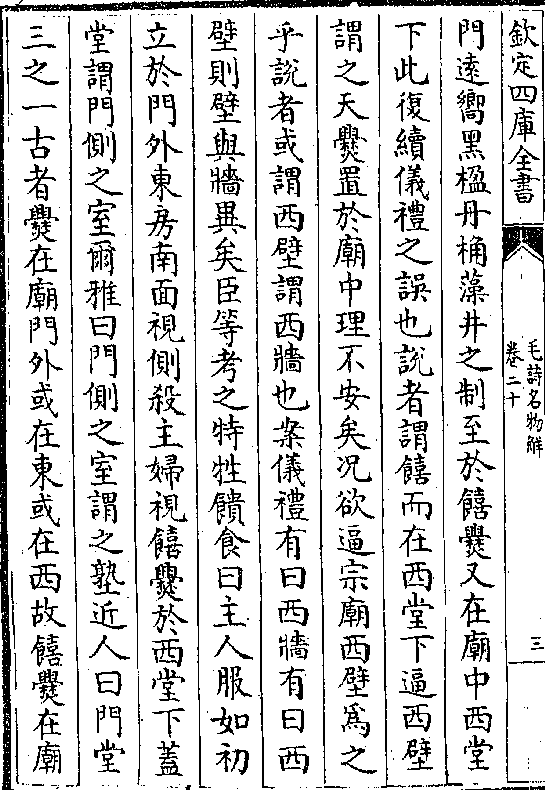 欽定四庫全書
毛詩名物解
卷二十
三
門達嚮黑楹丹桷藻井之制至於饎爨又在廟中西堂
下此復續儀禮之誤也說者謂饎而在西堂下逼西壁
謂之天爨置於廟中理不安矣况欲逼宗廟西壁為之
乎說者或謂西壁謂西牆也案儀禮有曰西牆有曰西
壁則壁與牆異矣臣等考之特牲饋食曰主人服如初
立於門外東房南面視側殺主婦視饎爨於西堂下蓋
堂謂門側之室爾雅曰門側之室謂之塾近人曰門堂
三之一古者爨在廟門外或在東或在西故饎爨在廟